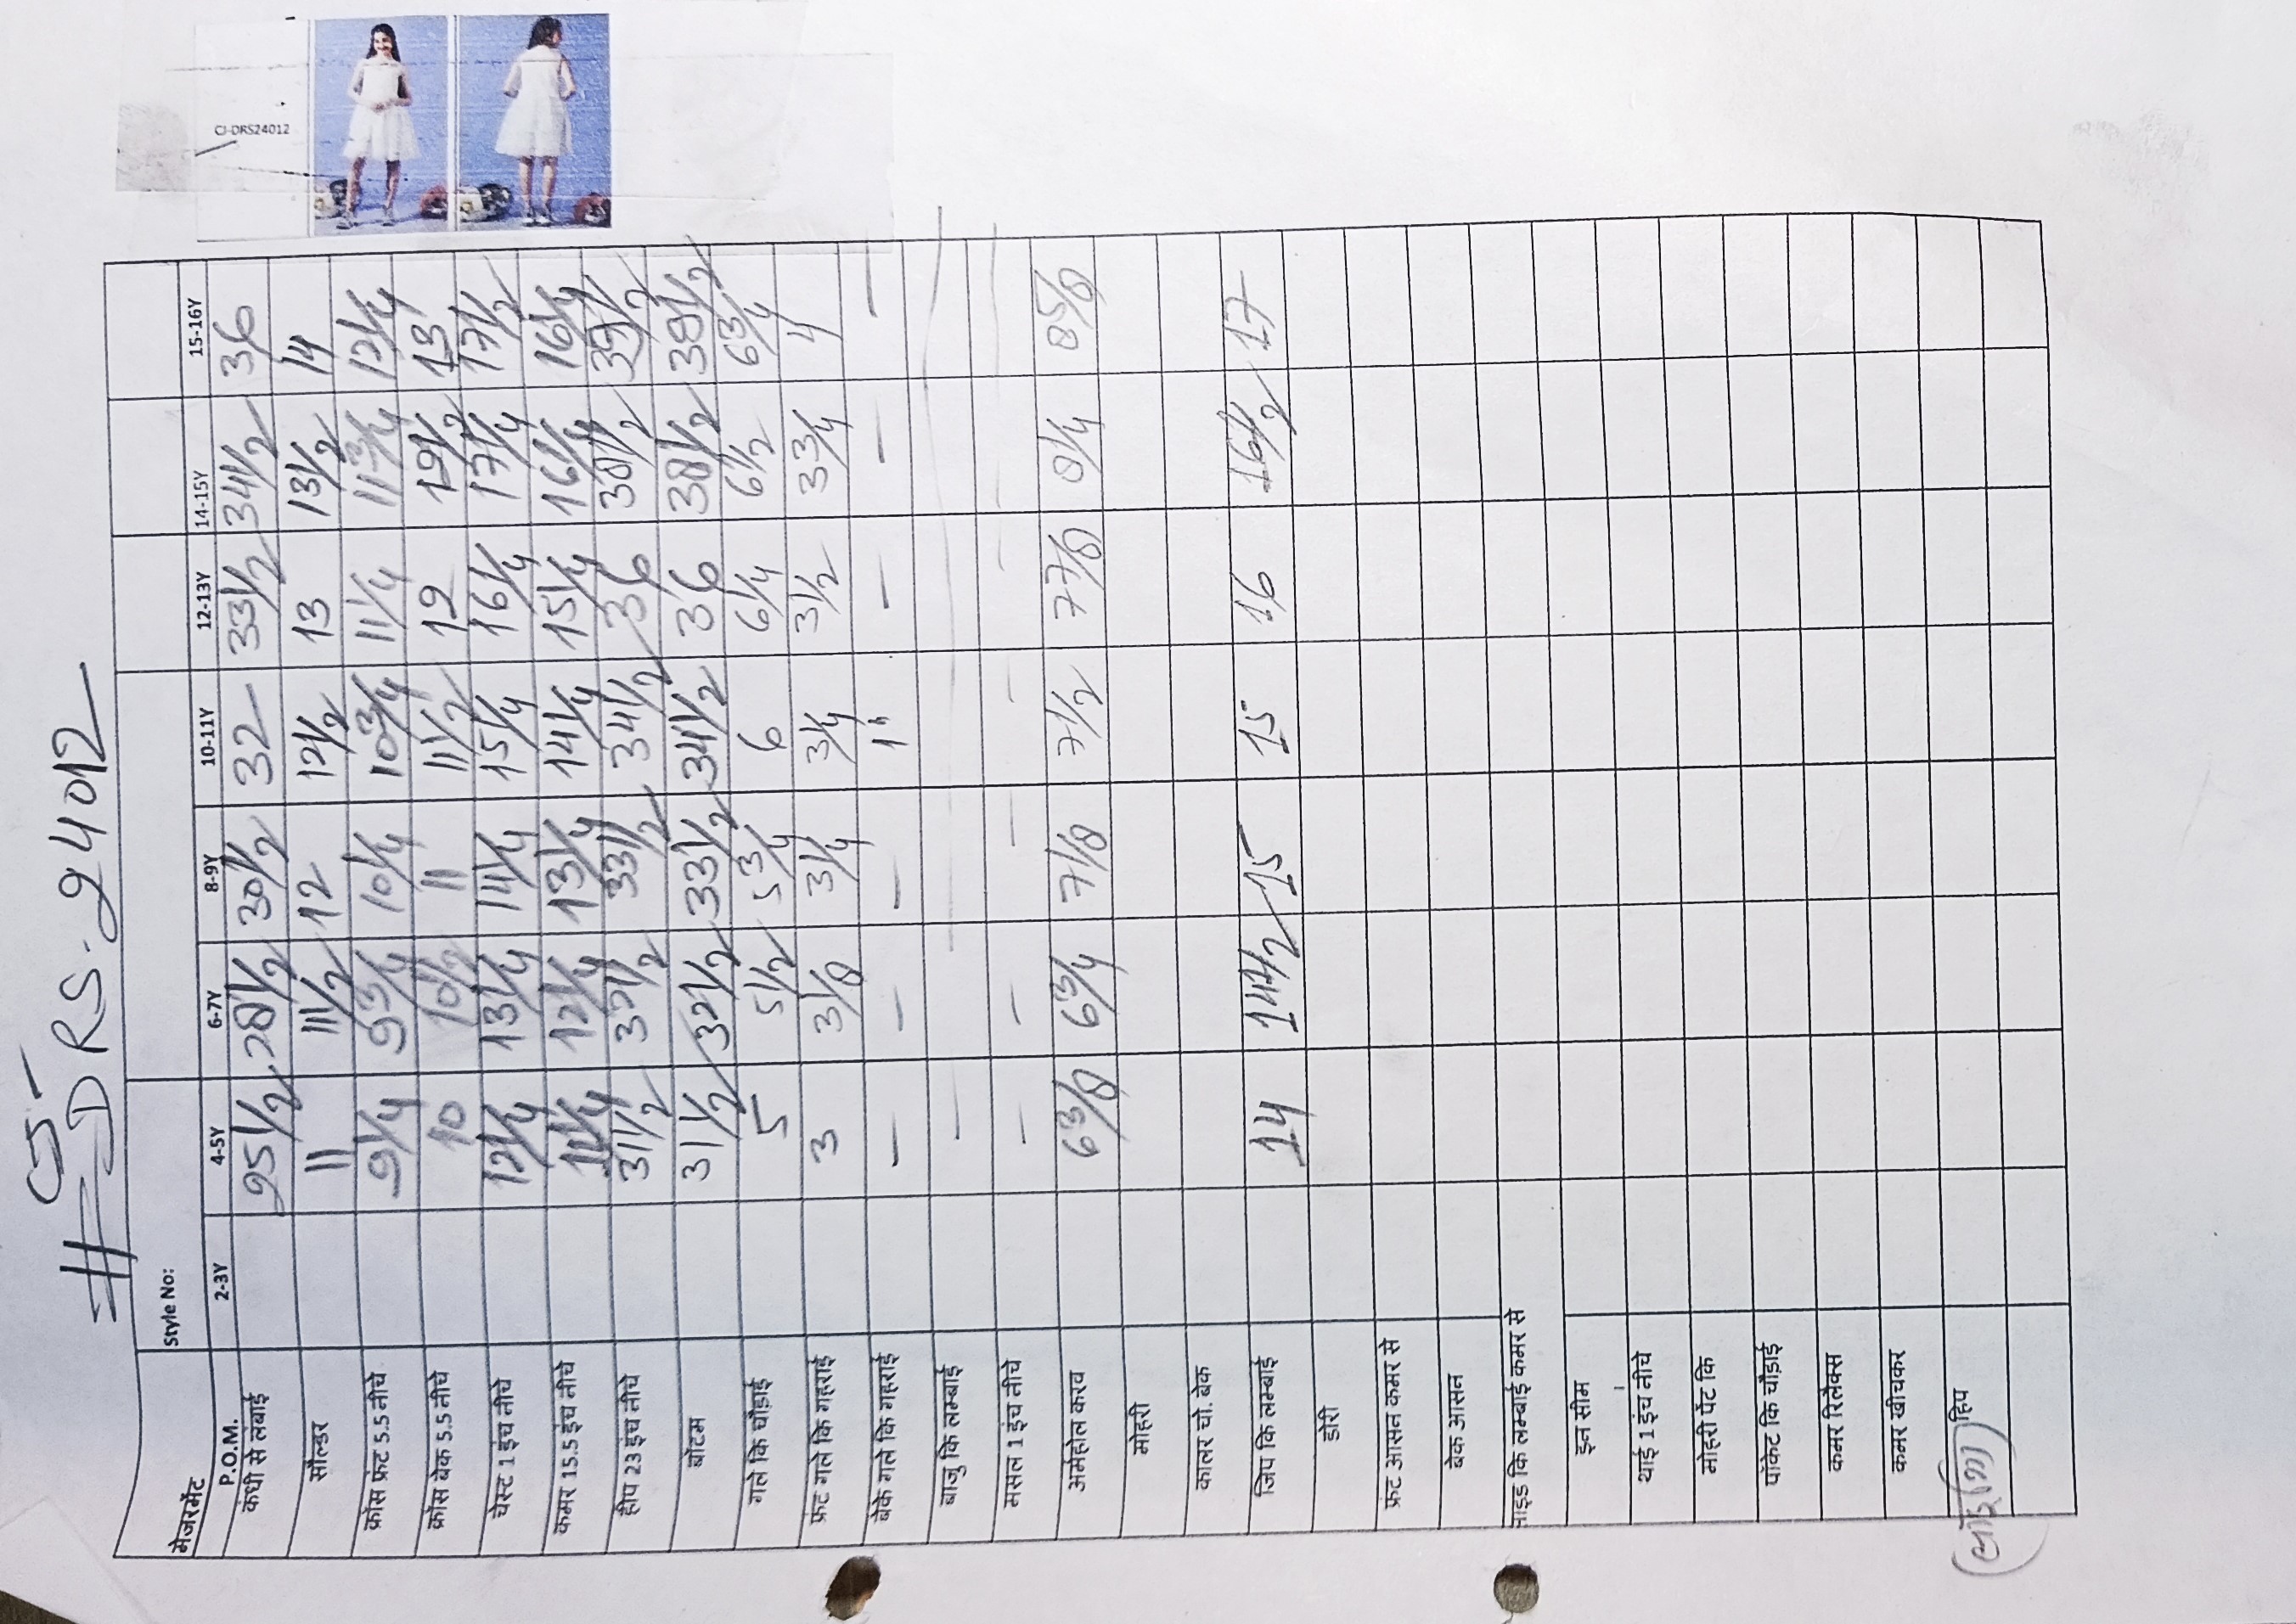 # CJ-
DRS.24012
CJ-DRS24012
मेजरमेंट Style No:
P.O.M. 2-3Y 4-5Y 6-7Y 8-9Y 10-11Y 12-13Y 14-15Y 15-16Y
कंधी से लंबाई 25 1/2 28 1/2 30 1/2 32 33 1/2 34 1/2 36
सोल्डर 11 11 1/2 12 12 1/2 13 13 1/2 14
क्रॉस फ्रंट 5.5 नीचे 9 1/4 9 3/4 10 1/4 10 3/4 11 1/4 11 3/4 12 1/4
क्रॉस बेक 5.5 नीचे 10 10 1/2 11 11 1/2 12 12 1/2 13
चेस्ट 1 इंच नीचे 12 1/4 13 1/4 14 1/4 15 1/4 16 1/4 17 1/4 17 1/2
कमर 15.5 इंच नीचे 11 1/4 12 1/4 13 1/4 14 1/4 15 1/4 16 1/4 16 1/4
हीप 23 इंच नीचे 31 1/2 32 1/2 33 1/2 34 1/2 36 38 1/2 39 1/2
बॉटम 31 1/2 32 1/2 33 1/2 34 1/2 36 38 1/2 38 1/2
गले कि चौड़ाई 5 5 1/2 5 3/4 6 6 1/4 6 1/2 6 3/4
फ्रंट गले कि गहराई 3 3 1/8 3 1/4 3 1/4 3 1/2 3 3/4 4
बेके गले कि गहराई — — — 1" — — —
बाजु कि लम्बाई —
मसल 1 इंच नीचे — — — — —
अर्महोल करव 6 3/8 6 3/4 7 1/8 7 1/2 7 7/8 8 1/4 8 5/8
मोहरी
कालर चो. बेक
जिप कि लम्बाई 14 14 1/2 15 15 16 16 1/2 17
डोरी
फ्रंट आसन कमर से
बेक आसन
साइड कि लम्बाई कमर से
इन सीम
थाई 1 इंच नीचे
मोहरी पेंट कि
पॉकेट कि चौड़ाई
कमर रिलैक्स
कमर खीचकर
हिप